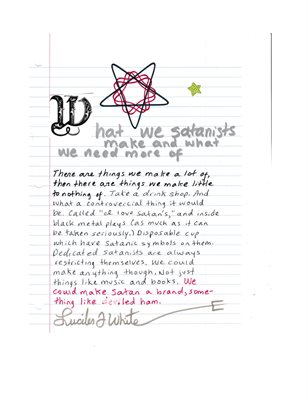 What we satanists
make and what
we need more of
There are things we make a lot of,
then there are things we make little
to nothing of. Take a drink shop. And
what a controvercial thing it would
be. Called "ol love Satan's," and inside
black metal plays (as much as it can
be taken seriously.) Disposable cup
which have Satanic symbols on them.
Dedicated Satanists are always
restricting themselves. We could
make anything though. Not just
things like music and books. We
could make Satan a brand, some-
thing like deviled ham.
Lucifer J White